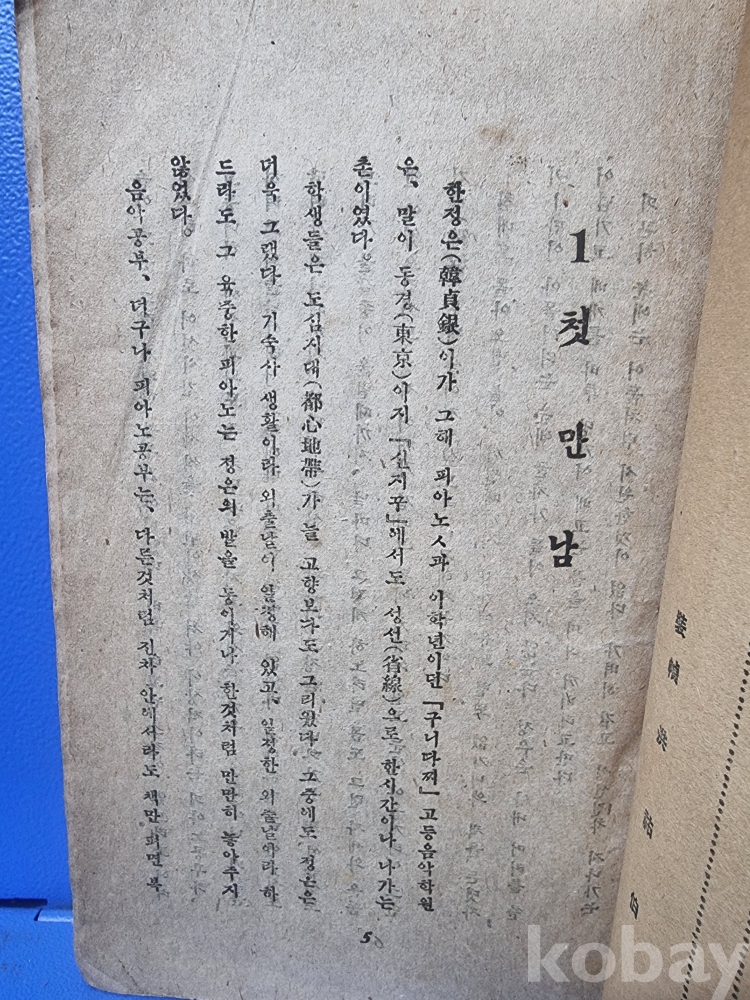 1 첫 만 남
한정은(韓貞銀)이가 그해 피아노ㅅ과 이학년이던 『구니다찌』 고등음악학원
은, 말이 동경(東京)이지 『신지꾸』에서도 성선(省線)으로 한시간이나 나가는
촌이였다.
학생들은 도심지대(都心地帶)가 늘 고향보다도 그리웠다. 그중에도 정은은
더욱 그랬다. 기숙사 생활이라 외출날이 일정해 있고, 일정한 외출날이라 하
드라도 그 육중한 피아노는 정은의 발을 동이거나 한것처럼 만만히 놓아주지
않었다.
음악공부, 더구나 피아노공부는, 다른것처럼 전차 안에서라도 책만 펴면 복
5
kobay